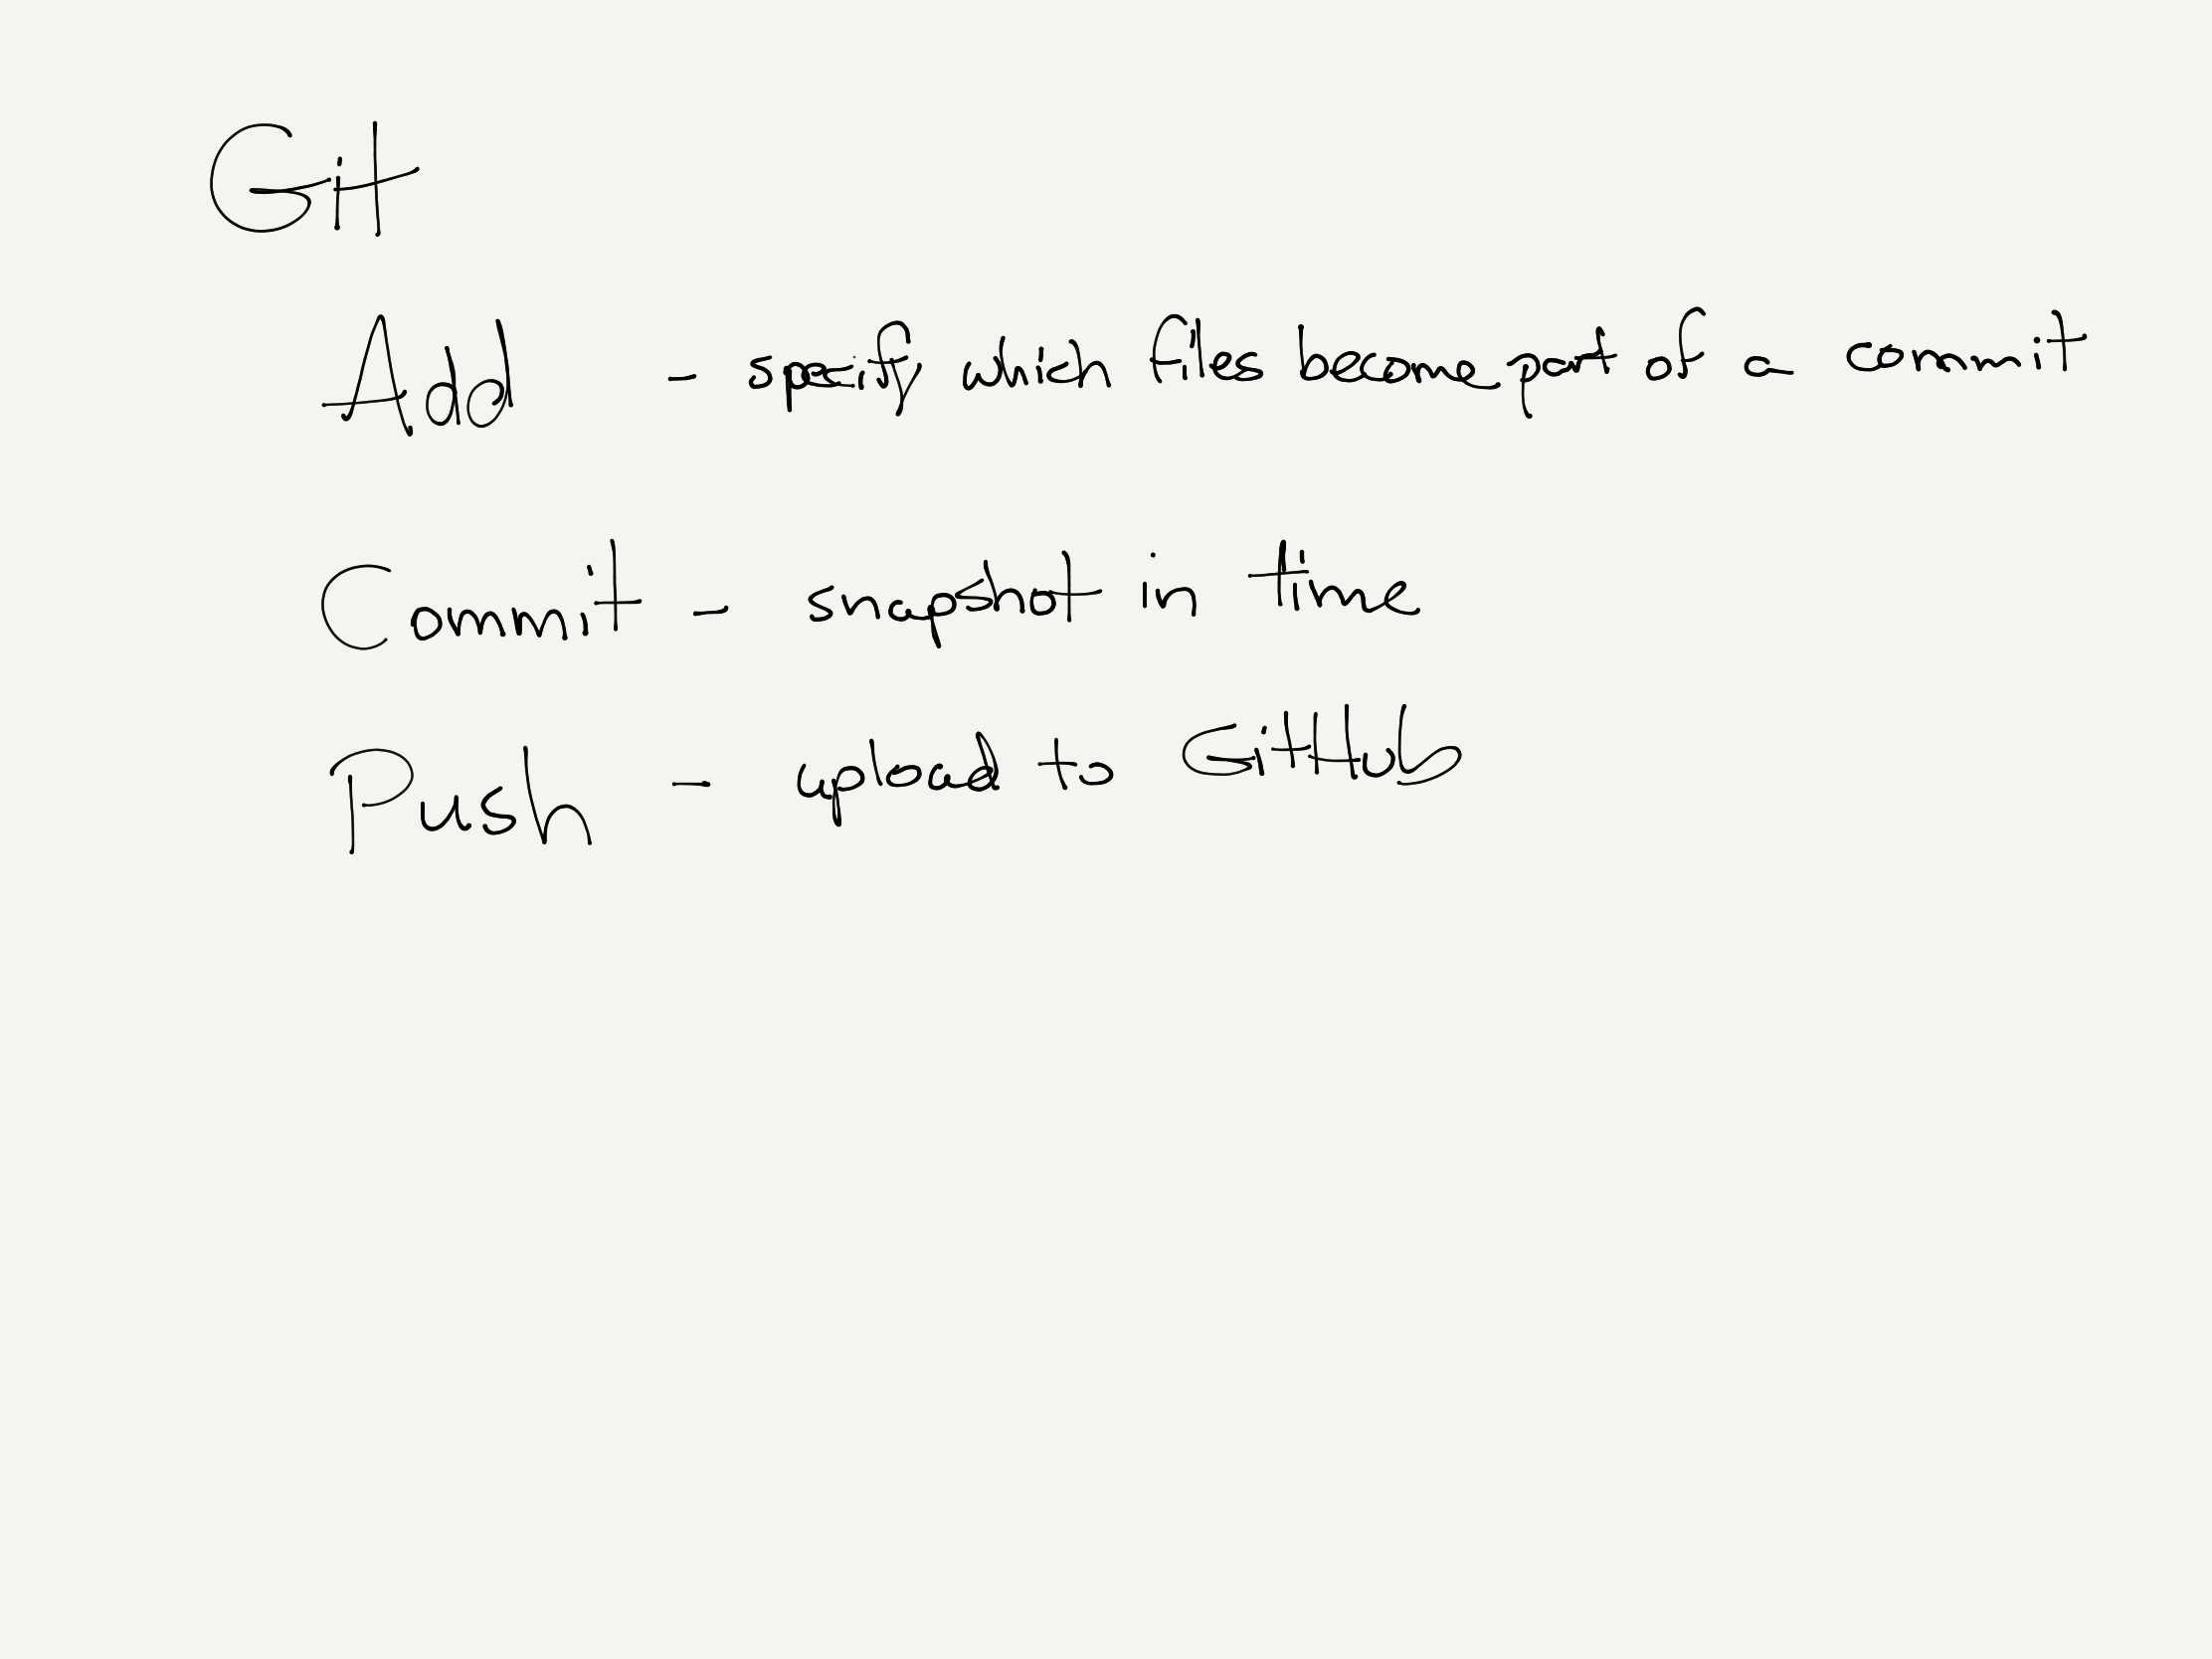 Git
Add - specify which files become part of a commit
Commit - snapshot in time
Push - upload to GitHub